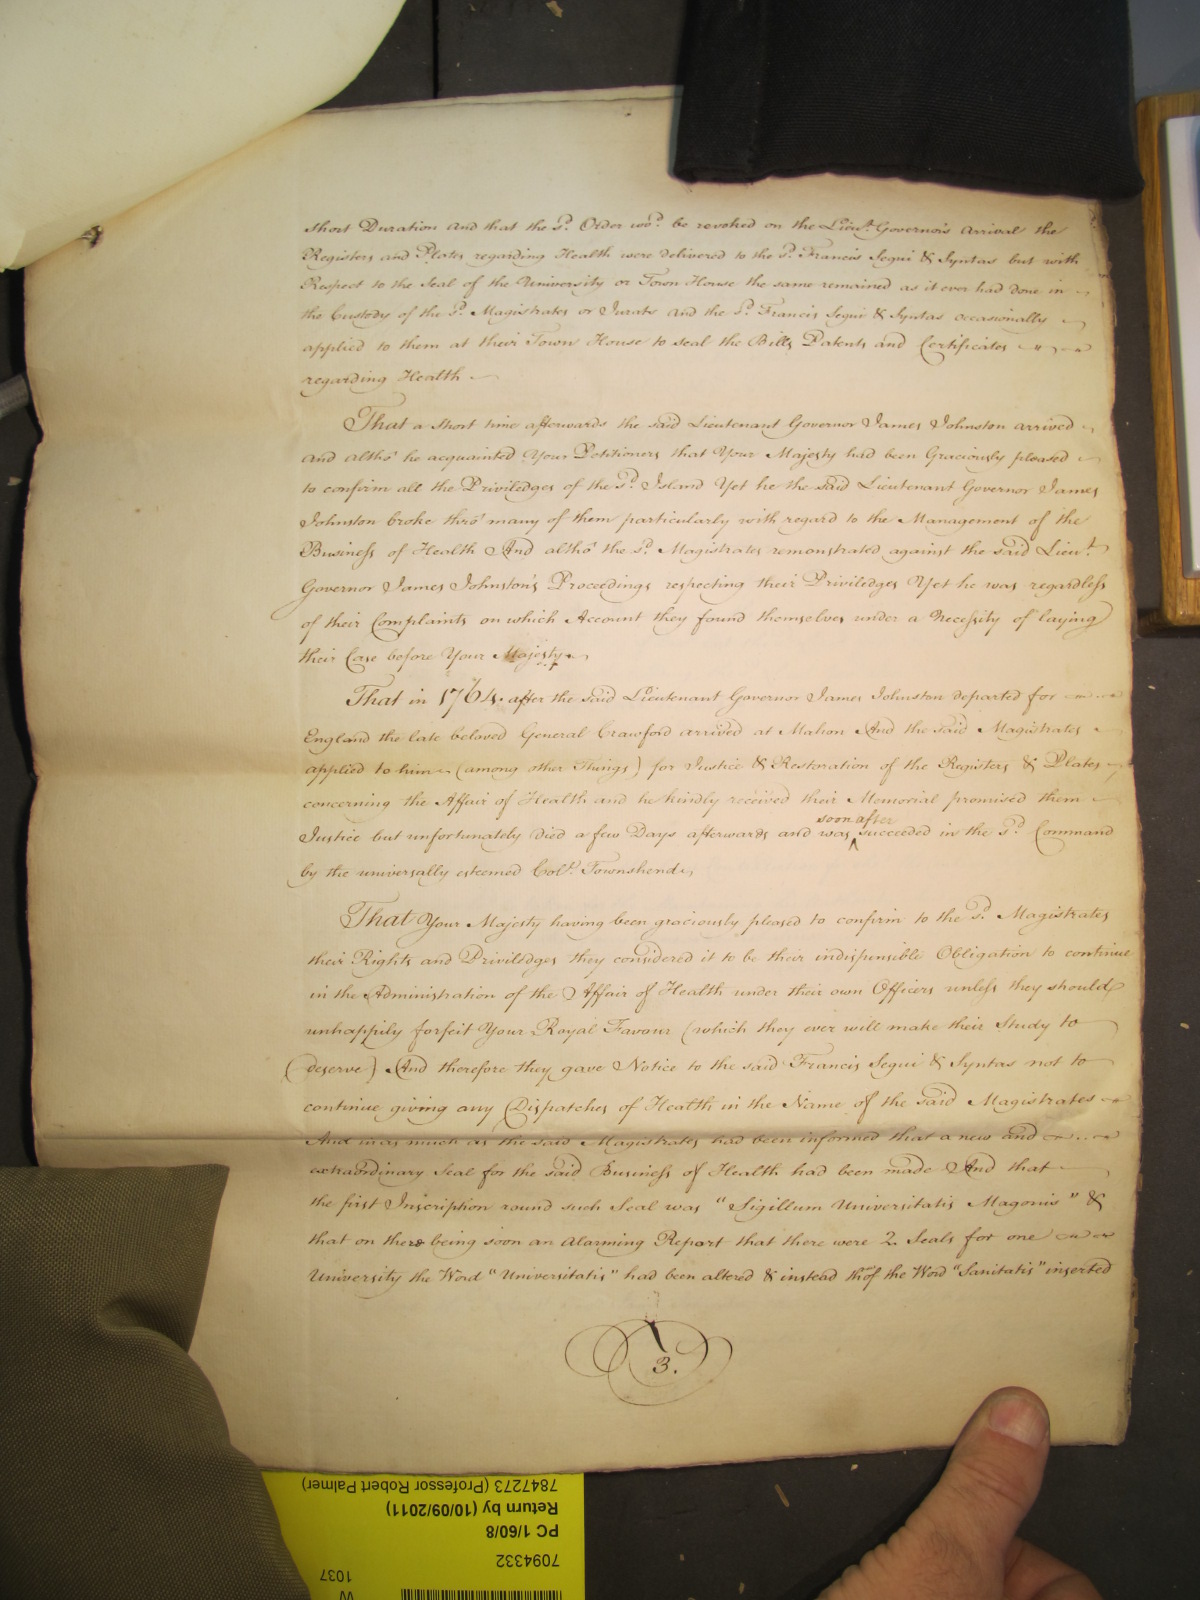 short Duration and that the sd. Order wod. be revoked on the Lieut. Governor's arrival the
Registers and Plates regarding Health were delivered to the sd. Francis Segui & Syntas but with
Respect to the Seal of the University or Town House the same remained as it ever had done in
the Custody of the sd. Magistrates or Jurats and the sd. Francis Segui & Syntas occasionally
applied to them at their Town House to seal the Bills Patents and Certificates
regarding Health
That a short time afterwards the said Lieutenant Governor James Johnston arrived
and altho' he acquainted Your Petitioners that Your Majesty had been Graciously pleased
to confirm all the Priviledges of the sd. Island Yet he the said Lieutenant Governor James
Johnston broke thro' many of them particularly with regard to the Management of the
Business of Health And altho' the sd. Magistrates remonstrated against the said Lieut.
Governor James Johnston's Proceedings respecting their Priviledges Yet he was regardless
of their Complaints on which Account they found themselves under a Necessity of laying
their Case before Your Majesty
That in 1764. after the said Lieutenant Governor James Johnston departed for
England the late beloved General Crawford arrived at Mahon And the said Magistrates
applied to him (among other Things) for Justice & Restoration of the Registers & Plates
concerning the Affair of Health and he kindly received their Memorial promised them
soon after
Justice but unfortunately died a few Days afterwards and was ‸ succeeded in the sd. Command
by the universally esteemed Colo. Townshend
That Your Majesty having been graciously pleased to confirm to the sd. Magistrates
their Rights and Priviledges they considered it to be their indispensible Obligation to continue
in the Administration of the Affair of Health under their own Officers unless they should
unhappily forfeit Your Royal Favour (which they ever will make their Study to
deserve) And therefore they gave Notice to the said Francis Segui & Syntas not to
continue giving any Dispatches of Health in the Name of the said Magistrates
And in as much as the said Magistrates had been informed that a new and
extraordinary Seal for the said Business of Health had been made And that
the first Inscription round such Seal was "Sigillum Universitatis Magonis" &
that on there being soon an alarming Report that there were 2 Seals for one
University the Word "Universitatis" had been altered & instead thof the Word "Sanitatis" inserted
3.
7847273 (Professor Robert Palmer)
Return by (10/09/2011)
PC 1/60/8
7094332
1037
W